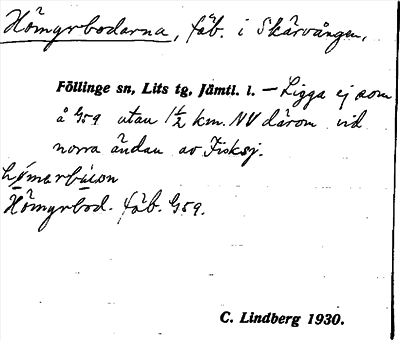 Hömyrbodarna, fäb. i Skärvången,
Föllinge sn, Lits tg, Jämtl. l. – Ligga ej som
å G59 utan 1½ km. NV därom vid
norra ändan av Fisksj.
Hömyrbod. fäb. G59.
C. Lindberg 1930.